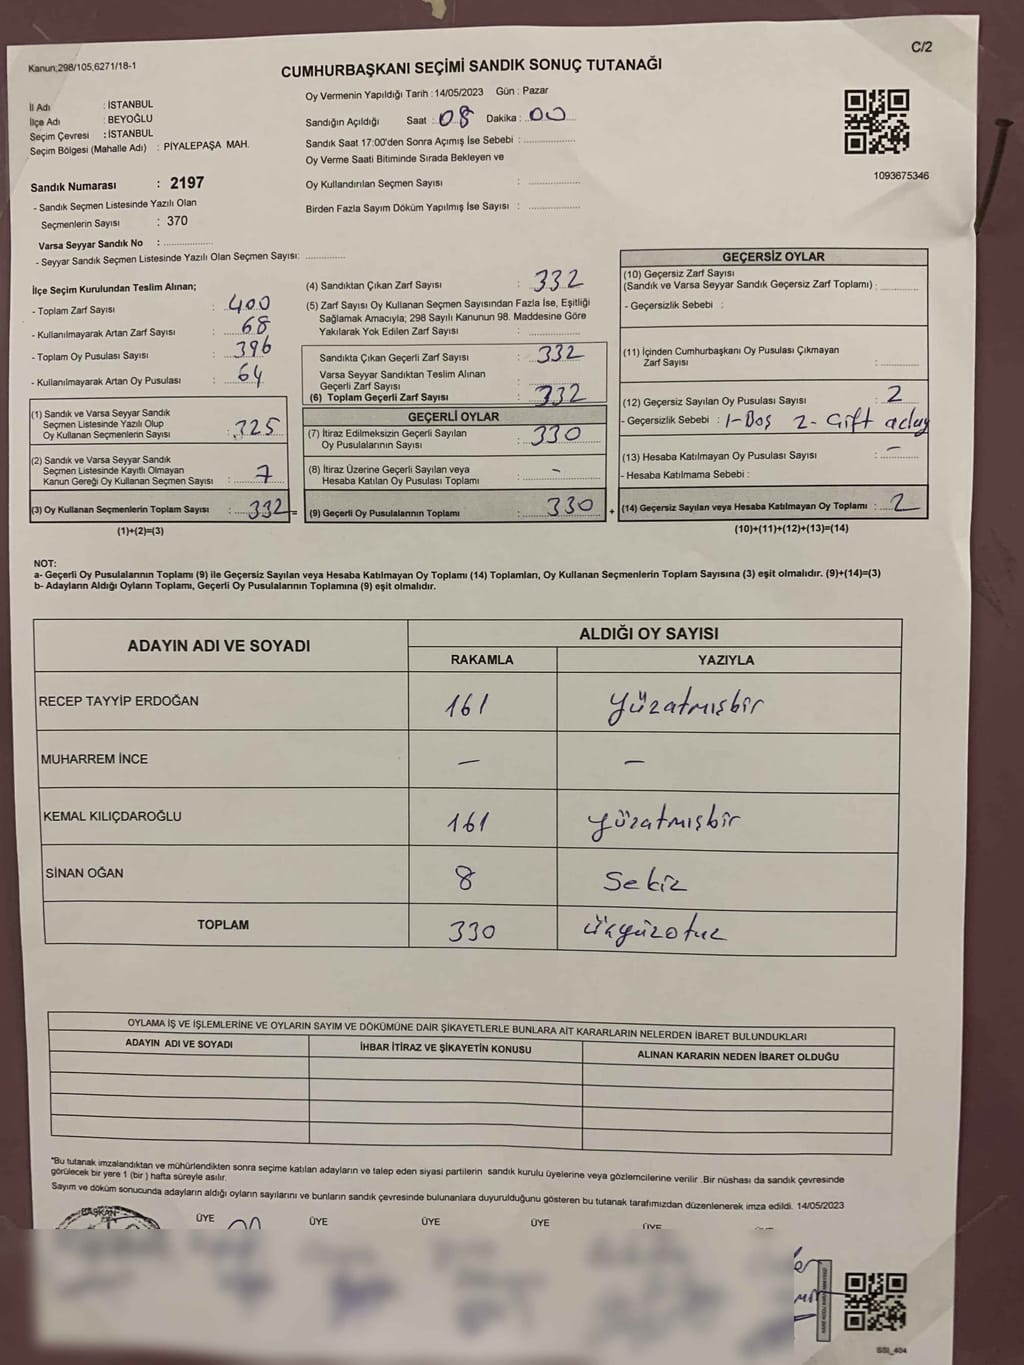 C/2
Kanun;298/105,6271/18-1
CUMHURBAŞKANI SEÇİMİ SANDIK SONUÇ TUTANAĞI
İl Adı : İSTANBUL
İlçe Adı : BEYOĞLU
Seçim Çevresi : İSTANBUL
Seçim Bölgesi (Mahalle Adı) : PİYALEPAŞA MAH.
Oy Vermenin Yapıldığı Tarih : 14/05/2023 Gün : Pazar
Sandığın Açıldığı Saat : 08 Dakika : 00
Sandık Saat 17:00'den Sonra Açımış İse Sebebi :
Oy Verme Saati Bitiminde Sırada Bekleyen ve
Oy Kullandırılan Seçmen Sayısı :
Birden Fazla Sayım Döküm Yapılmış İse Sayısı :
1093675346
Sandık Numarası : 2197
- Sandık Seçmen Listesinde Yazılı Olan
Seçmenlerin Sayısı : 370
Varsa Seyyar Sandık No :
- Seyyar Sandık Seçmen Listesinde Yazılı Olan Seçmen Sayısı:
İlçe Seçim Kurulundan Teslim Alınan;
- Toplam Zarf Sayısı : 400
- Kullanılmayarak Artan Zarf Sayısı : 68
- Toplam Oy Pusulası Sayısı : 396
- Kullanılmayarak Artan Oy Pusulası : 64
(1) Sandık ve Varsa Seyyar Sandık
Seçmen Listesinde Yazılı Olup
Oy Kullanan Seçmenlerin Sayısı : 325
(2) Sandık ve Varsa Seyyar Sandık
Seçmen Listesinde Kayıtlı Olmayan
Kanun Gereği Oy Kullanan Seçmen Sayısı : 7
(3) Oy Kullanan Seçmenlerin Toplam Sayısı : 332 =
(1)+(2)=(3)
(4) Sandıktan Çıkan Zarf Sayısı : 332
(5) Zarf Sayısı Oy Kullanan Seçmen Sayısından Fazla İse, Eşitliği
Sağlamak Amacıyla; 298 Sayılı Kanunun 98. Maddesine Göre
Yakılarak Yok Edilen Zarf Sayısı :
Sandıkta Çıkan Geçerli Zarf Sayısı : 332
Varsa Seyyar Sandıktan Teslim Alınan
Geçerli Zarf Sayısı :
(6) Toplam Geçerli Zarf Sayısı : 332
GEÇERLİ OYLAR
(7) İtiraz Edilmeksizin Geçerli Sayılan
Oy Pusulalarının Sayısı : 330
(8) İtiraz Üzerine Geçerli Sayılan veya
Hesaba Katılan Oy Pusulası Toplamı : -
(9) Geçerli Oy Pusulalarının Toplamı : 330 +
GEÇERSİZ OYLAR
(10) Geçersiz Zarf Sayısı
(Sandık ve Varsa Seyyar Sandık Geçersiz Zarf Toplamı) :
- Geçersizlik Sebebi :
(11) İçinden Cumhurbaşkanı Oy Pusulası Çıkmayan
Zarf Sayısı :
(12) Geçersiz Sayılan Oy Pusulası Sayısı : 2
- Geçersizlik Sebebi : 1-Boş 2- Çift aday
(13) Hesaba Katılmayan Oy Pusulası Sayısı : -
- Hesaba Katılmama Sebebi :
(14) Geçersiz Sayılan veya Hesaba Katılmayan Oy Toplamı : 2
(10)+(11)+(12)+(13)=(14)
NOT:
a- Geçerli Oy Pusulalarının Toplamı (9) ile Geçersiz Sayılan veya Hesaba Katılmayan Oy Toplamı (14) Toplamları, Oy Kullanan Seçmenlerin Toplam Sayısına (3) eşit olmalıdır. (9)+(14)=(3)
b- Adayların Aldığı Oyların Toplamı, Geçerli Oy Pusulalarının Toplamına (9) eşit olmalıdır.
ADAYIN ADI VE SOYADI ALDIĞI OY SAYISI
RAKAMLA YAZIYLA
RECEP TAYYİP ERDOĞAN 161 Yüzatmışbir
MUHARREM İNCE - -
KEMAL KILIÇDAROĞLU 161 yüzatmışbir
SİNAN OĞAN 8 Sekiz
TOPLAM 330 üçyüzotuz
OYLAMA İŞ VE İŞLEMLERİNE VE OYLARIN SAYIM VE DÖKÜMÜNE DAİR ŞİKAYETLERLE BUNLARA AİT KARARLARIN NELERDEN İBARET BULUNDUKLARI
ADAYIN ADI VE SOYADI İHBAR İTİRAZ VE ŞİKAYETİN KONUSU ALINAN KARARIN NEDEN İBARET OLDUĞU
"Bu tutanak imzalandıktan ve mühürlendikten sonra seçime katılan adayların ve talep eden siyasi partilerin sandık kurulu üyelerine veya gözlemcilerine verilir .Bir nüshası da sandık çevresinde
görülecek bir yere 1 (bir ) hafta süreyle asılır.
Sayım ve döküm sonucunda adayların aldığı oyların sayılarını ve bunların sandık çevresinde bulunanlara duyurulduğunu gösteren bu tutanak tarafımızdan düzenlenerek imza edildi. 14/05/2023
BAŞKAN ÜYE ÜYE ÜYE ÜYE ÜYE